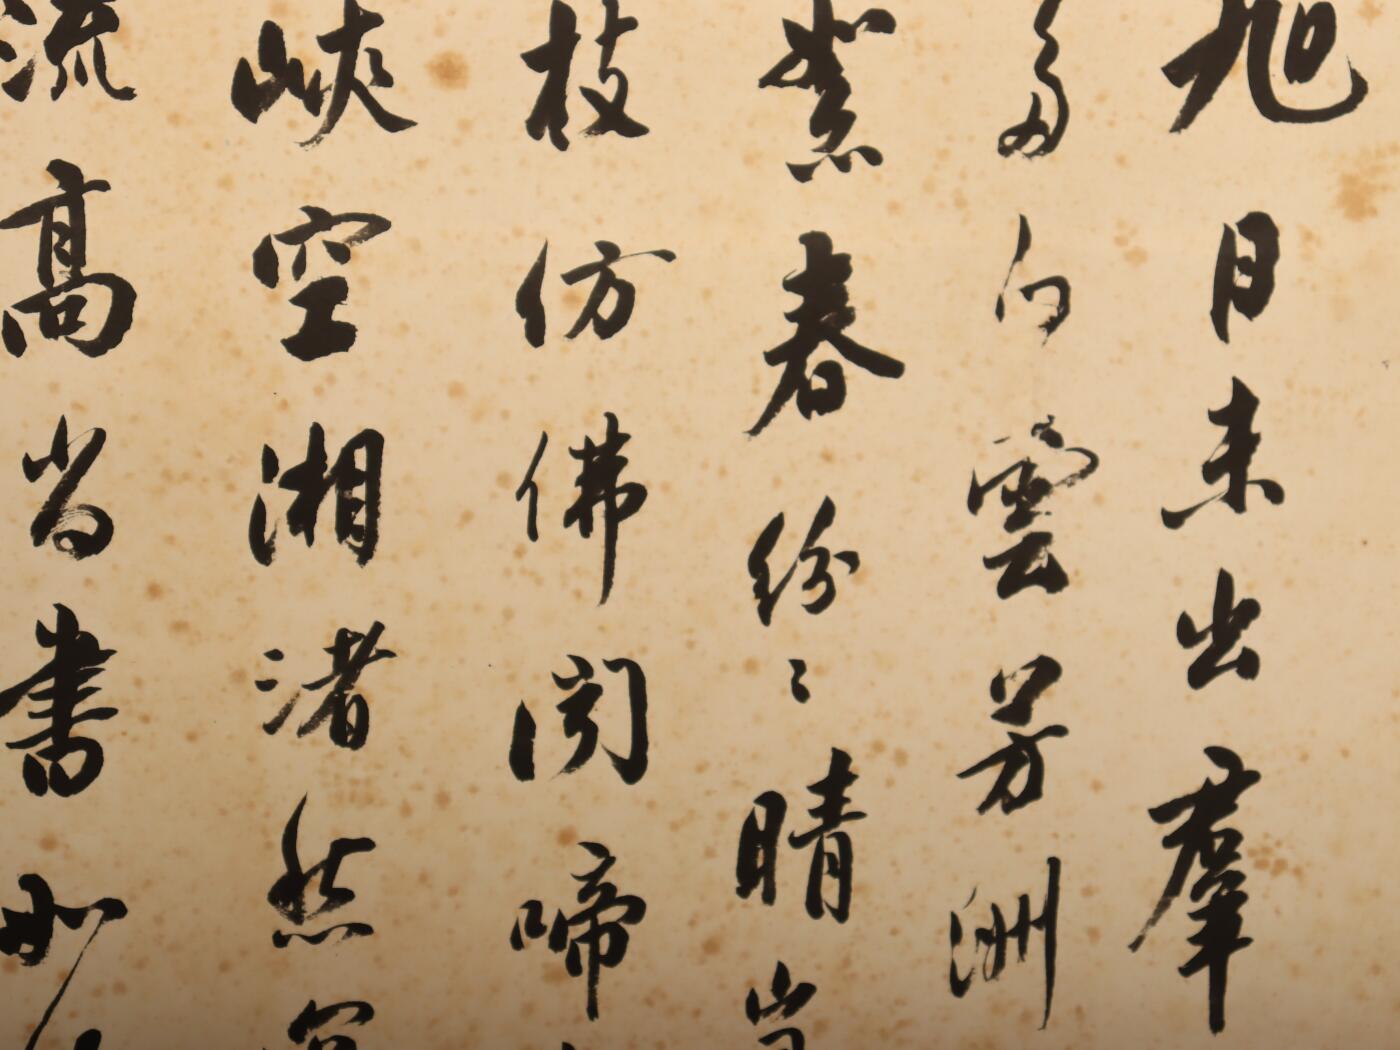 旭月未出羣
多向雲芳洲
紫春紛〻晴
枝仿佛闻啼
峽空湘渚然
流高當書妙